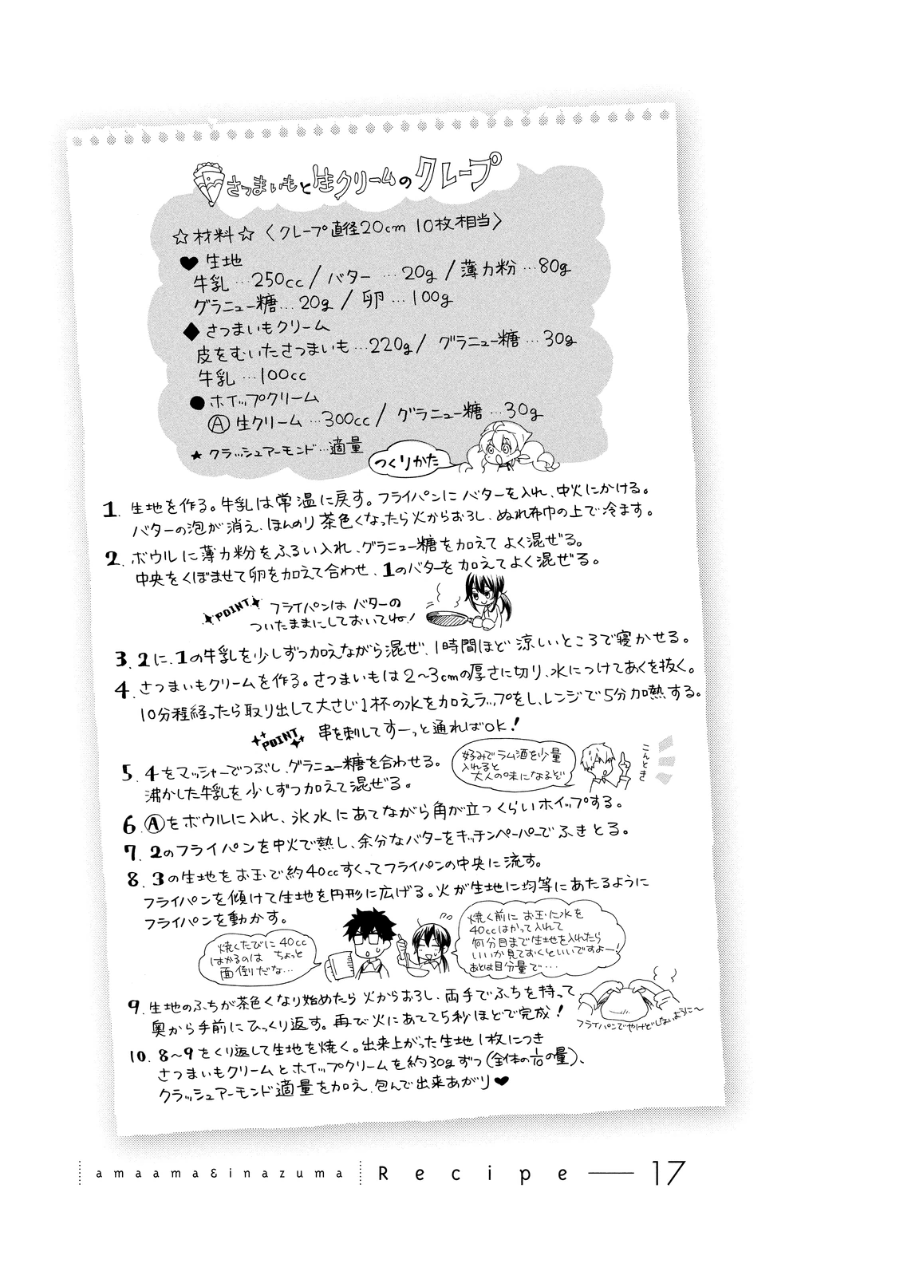 さつまいもと生クリームのクレープ
☆材料☆〈クレープ直径20cm 10枚相当〉
♥生地
牛乳…250cc/バター…20g/薄力粉…80g
グラニュー糖…20g/卵…100g
◆さつまいもクリーム
皮をむいたさつまいも…220g/グラニュー糖…30g
牛乳…100cc
●ホイップクリーム
Ⓐ生クリーム…300cc/グラニュー糖…30g
★クラッシュアーモンド…適量
つくりかた
1. 生地を作る。牛乳は常温に戻す。フライパンにバターを入れ、中火にかける。
バターの泡が消え、ほんのり茶色くなったら火からおろし、ぬれ布巾の上で冷ます。
2. ボウルに薄力粉をふるい入れ、グラニュー糖を加えてよく混ぜる。
中央をくぼませて卵を加えて合わせ、1のバターを加えてよく混ぜる。
POINT フライパンはバターの
ついたままにしておいてね!
3. 2に、1の牛乳を少しずつ加えながら混ぜ、1時間ほど涼しいところで寝かせる。
4. さつまいもクリームを作る。さつまいもは2〜3cmの厚さに切り、水につけてあくを抜く。
10分程経ったら取り出して大さじ1杯の水を加えラップをし、レンジで5分加熱する。
POINT 串を刺してすーっと通ればOK!
5. 4をマッシャーでつぶし、グラニュー糖を合わせる。
沸かした牛乳を少しずつ加えて混ぜる。
好みでラム酒を少量
入れると
大人の味になるぞ
こんとき
6. Ⓐをボウルに入れ、氷水にあてながら角が立つくらいホイップする。
7. 2のフライパンを中火で熱し、余分なバターをキッチンペーパーでふきとる。
8. 3の生地をお玉で約40ccすくってフライパンの中央に流す。
フライパンを傾けて生地を円形に広げる。火が生地に均等にあたるように
フライパンを動かす。
焼くたびに40cc
はかるのはちょっと
面倒だな…
焼く前にお玉に水を
40ccはかって入れて
何分目まで生地を入れたら
いいか見ておくといいですよー!
あとは目分量で…
9. 生地のふちが茶色くなり始めたら火からおろし、両手でふちを持って
奥から手前にひっくり返す。再び火にあてて5秒ほどで完成!
フライパンでやけどしないように〜
10. 8〜9をくり返して生地を焼く。出来上がった生地1枚につき
さつまいもクリームとホイップクリームを約30gずつ(全体の1/10の量)、
クラッシュアーモンド適量を加え、包んで出来あがり♥
amaama&inazuma Recipe — 17